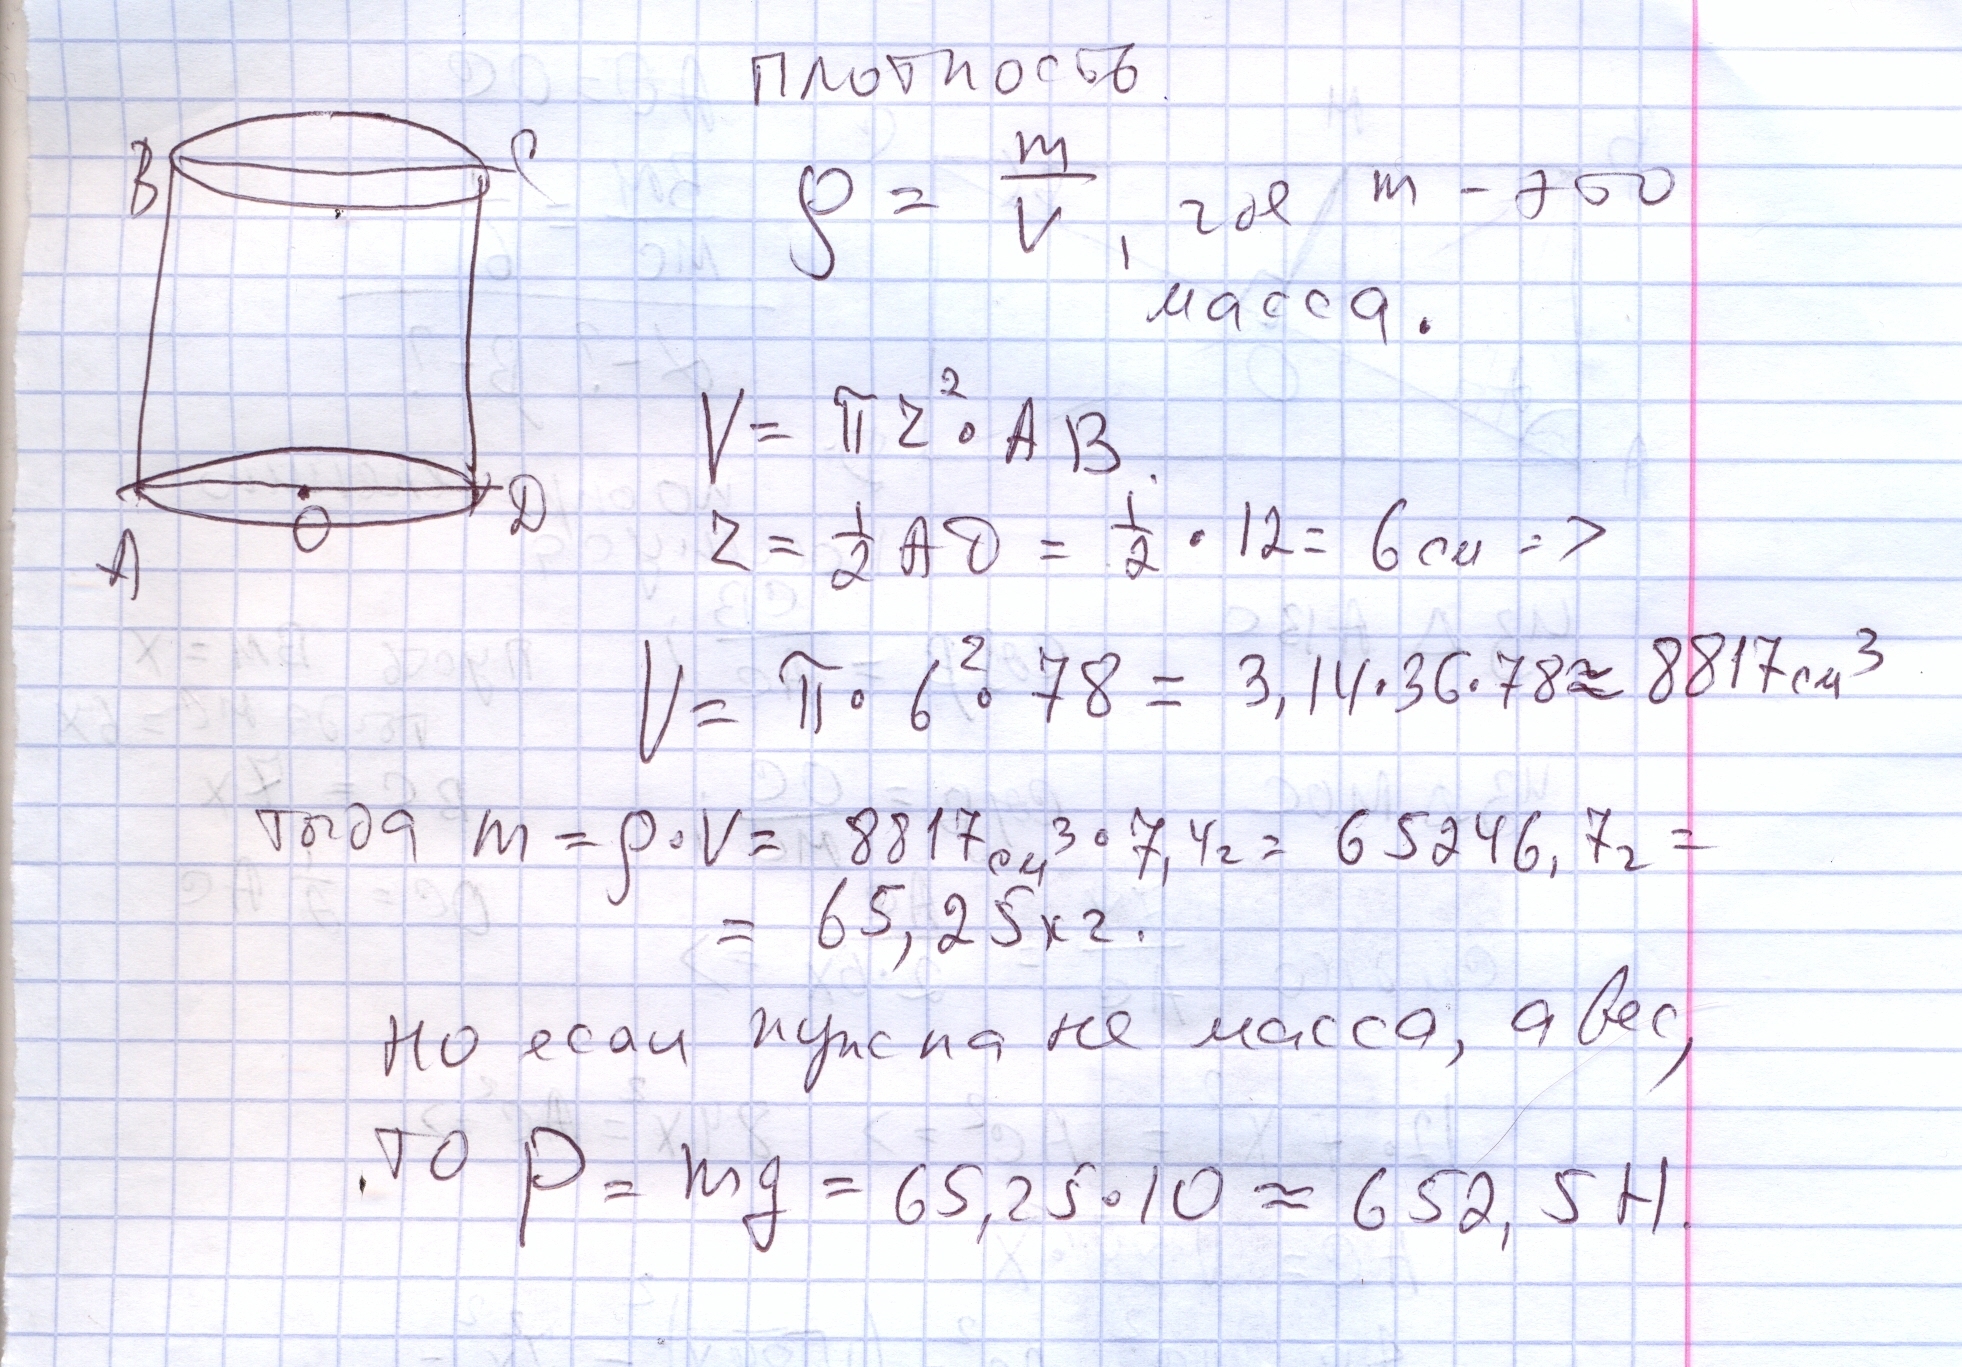 плотность
ρ = m/V, где m - это
масса.
B
C
A
O
D
V = πr²·AB.
r = 1/2 AD = 1/2 · 12 = 6 см =>
V = π·6²·78 = 3,14·36·78 ≈ 8817 см³
тогда m = ρ·V = 8817 см³·7,4г = 65246,7г =
= 65,25 кг.
но если нужна не масса, а вес,
то P = mg = 65,25·10 ≈ 652,5 Н.